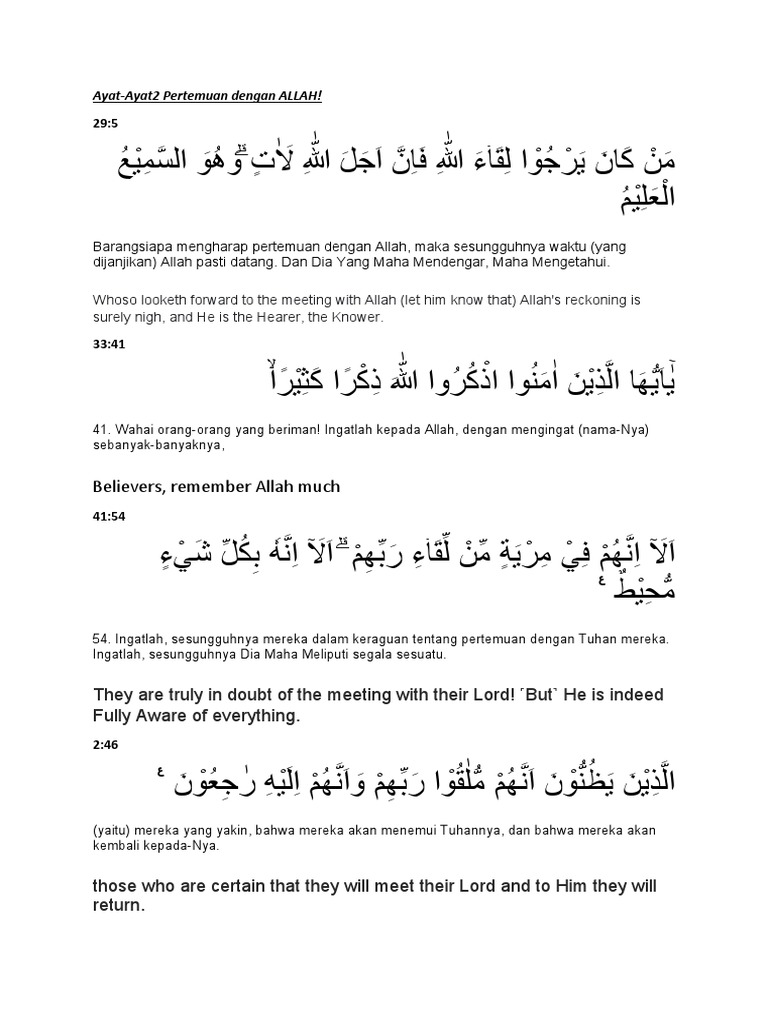 Ayat-Ayat2 Pertemuan dengan ALLAH!
29:5
مَنْ كَانَ يَرْجُوْا لِقَاۤءَ اللّٰهِ فَاِنَّ اَجَلَ اللّٰهِ لَاٰتٍ ۗوَهُوَ السَّمِيْعُ
الْعَلِيْمُ
Barangsiapa mengharap pertemuan dengan Allah, maka sesungguhnya waktu (yang
dijanjikan) Allah pasti datang. Dan Dia Yang Maha Mendengar, Maha Mengetahui.
Whoso looketh forward to the meeting with Allah (let him know that) Allah's reckoning is
surely nigh, and He is the Hearer, the Knower.
33:41
يٰٓاَيُّهَا الَّذِيْنَ اٰمَنُوا اذْكُرُوا اللّٰهَ ذِكْرًا كَثِيْرًاۙ
41. Wahai orang-orang yang beriman! Ingatlah kepada Allah, dengan mengingat (nama-Nya)
sebanyak-banyaknya,
Believers, remember Allah much
41:54
اَلَآ اِنَّهُمْ فِيْ مِرْيَةٍ مِّنْ لِّقَاۤءِ رَبِّهِمْ ۗ اَلَآ اِنَّهٗ بِكُلِّ شَيْءٍ
مُّحِيْطٌ ࣖ
54. Ingatlah, sesungguhnya mereka dalam keraguan tentang pertemuan dengan Tuhan mereka.
Ingatlah, sesungguhnya Dia Maha Meliputi segala sesuatu.
They are truly in doubt of the meeting with their Lord! ˹But˺ He is indeed
Fully Aware of everything.
2:46
الَّذِيْنَ يَظُنُّوْنَ اَنَّهُمْ مُّلٰقُوْا رَبِّهِمْ وَاَنَّهُمْ اِلَيْهِ رٰجِعُوْنَ ࣖ
(yaitu) mereka yang yakin, bahwa mereka akan menemui Tuhannya, dan bahwa mereka akan
kembali kepada-Nya.
those who are certain that they will meet their Lord and to Him they will
return.